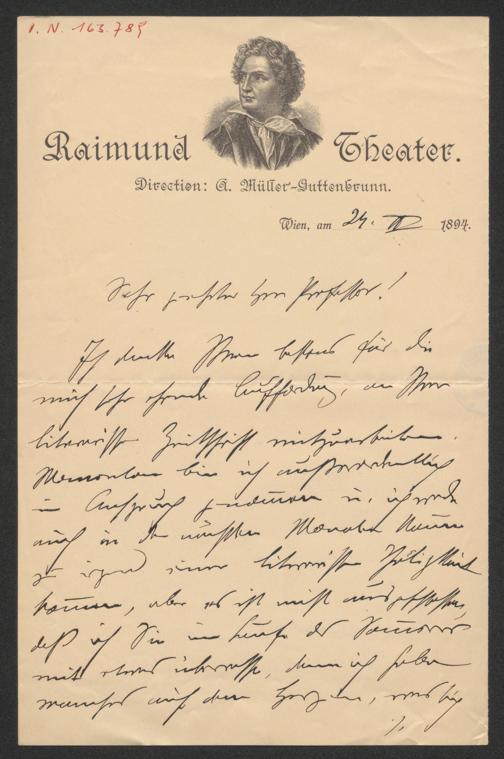 I. N. 163.789
Raimund Theater.
Direction: A. Müller-Guttenbrunn.
Wien, am 24. II 1894.
Sehr geehrter Herr Professor!
Ich danke Ihnen bestens für die
mich sehr ehrende Aufforderung, an Ihrer
literarischen Zeitschrift mitzuarbeiten.
Momentan bin ich außerordentlich
in Anspruch genommen u. ich werde
auch in den nächsten Monaten kaum
zu irgend einer literarischen Thätigkeit
kommen, aber es ist nicht ausgeschlossen,
daß ich Sie im Laufe des Sommers
mit etwas überrasche, denn ich habe
manches auf dem Herzen, was ich